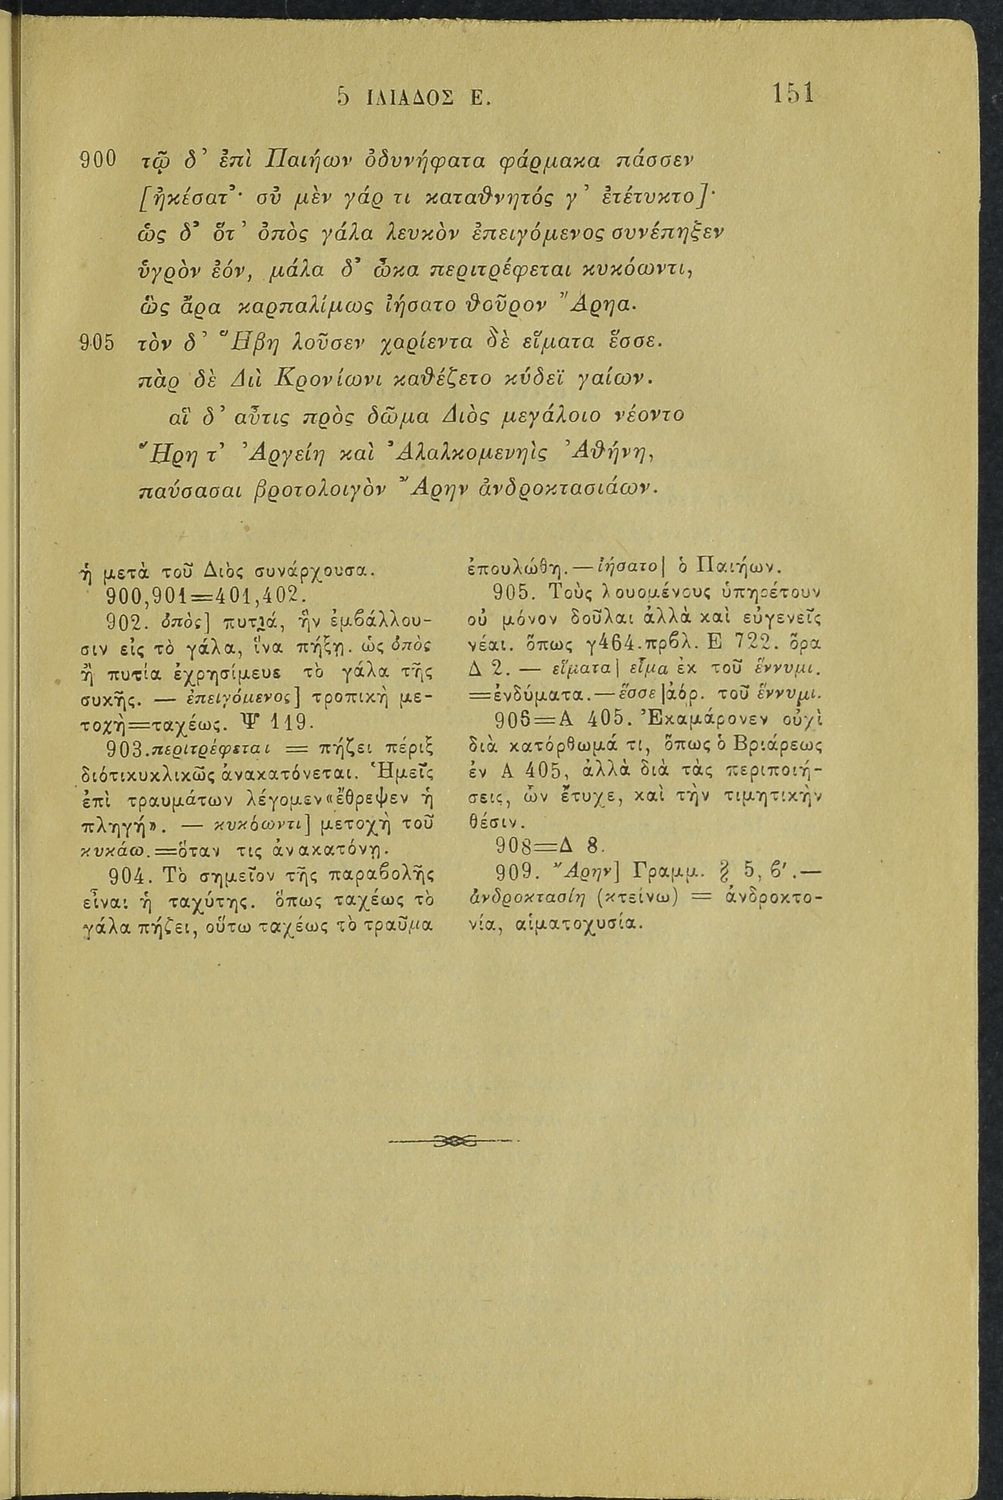 5 ΙΛΙΑΔΟΣ Ε. 151
900 τῷ δ’ ἐπὶ Παιήων ὀδυνήφατα φάρμακα πάσσεν
[ἠκέσατ’· οὐ μὲν γάρ τι καταθνητός γ’ ἐτέτυκτο]·
ὡς δ’ ὅτ’ ὀπὸς γάλα λευκὸν ἐπειγόμενος συνέπηξεν
ὑγρὸν ἐόν, μάλα δ’ ὦκα περιτρέφεται κυκόωντι,
ὣς ἄρα καρπαλίμως ἰήσατο θοῦρον Ἄρηα.
905 τὸν δ’ Ἥβη λοῦσεν χαρίεντα δὲ εἵματα ἕσσε.
πὰρ δὲ Διὶ Κρονίωνι καθέζετο κύδεϊ γαίων.
αἳ δ’ αὖτις πρὸς δῶμα Διὸς μεγάλοιο νέοντο
Ἥρη τ’ Ἀργείη καὶ Ἀλαλκομενηὶς Ἀθήνη,
παύσασαι βροτολοιγὸν Ἄρην ἀνδροκτασιάων.
ἡ μετὰ τοῦ Διὸς συνάρχουσα.
900,901=401,402.
902. ὀπὸς] πυτιά, ἣν ἐμβάλλου-
σιν εἰς τὸ γάλα, ἵνα πήξῃ. ὡς ὀπὸς
ἢ πυτία ἐχρησίμευε τὸ γάλα τῆς
συκῆς. — ἐπειγόμενος] τροπικὴ με-
τοχὴ=ταχέως. Ψ 119.
903. περιτρέφεται = πήζει πέριξ
διότι κυκλικῶς ἀνακατόνεται. Ἡμεῖς
ἐπὶ τραυμάτων λέγομεν «ἔθρεψεν ἡ
πληγή». — κυκόωντι] μετοχὴ τοῦ
κυκάω.=ὅταν τις ἀνακατόνῃ.
904. Τὸ σημεῖον τῆς παραβολῆς
εἶναι ἡ ταχύτης. ὅπως ταχέως τὸ
γάλα πήζει, οὕτω ταχέως τὸ τραῦμα
ἐπουλώθη. — ἰήσατο| ὁ Παιήων.
905. Τοὺς λουομένους ὑπηρέτουν
οὐ μόνον δοῦλαι ἀλλὰ καὶ εὐγενεῖς
νέαι. ὅπως γ464. πρβλ. Ε 722. ὅρα
Δ 2. — εἵματα| εἷμα ἐκ τοῦ ἕννυμι.
=ἐνδύματα. — ἕσσε|ἀόρ. τοῦ ἕννυμι.
906=Α 405. Ἐκαμάρονεν οὐχὶ
διὰ κατόρθωμά τι, ὅπως ὁ Βριάρεως
ἐν Α 405, ἀλλὰ διὰ τὰς περιποιή-
σεις, ὧν ἔτυχε, καὶ τὴν τιμητικὴν
θέσιν.
908=Δ 8.
909. Ἄρην] Γραμμ. § 5, β′. —
ἀνδροκτασίη (κτείνω) = ἀνδροκτο-
νία, αἱματοχυσία.